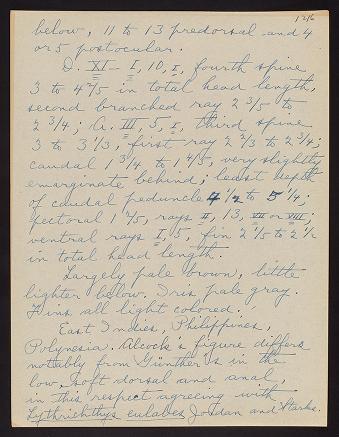 1216
below, 11 to 13 predorsal and 4
or 5 postocular.
D. XI - I, 10, I, fourth spine
3 to 4 2/5 in total head length,
second branched ray 2 3/5 to
2 3/4; A. III, 5, I, third spine
3 to 3 1/3, first ray 2 2/3 to 2 3/4;
caudal 1 3/4 to 1 4/5, very slightly
emarginate behind; least depth
of caudal peduncle 4 1/2 to 5 1/4;
pectoral 1 4/5, rays II, 13, VII or VIII;
ventral rays I, 5, fin 2 1/5 to 2 1/2
in total head length.
Largely pale brown, little
lighter below. Iris pale gray.
Fins all light colored.
East Indies, Philippines,
Polynesia. Alcock's figure differs
notably from Günther's in the
low, soft dorsal and anal,
in this respect agreeing with
Lythrichthys eulabes Jordan and Starks.